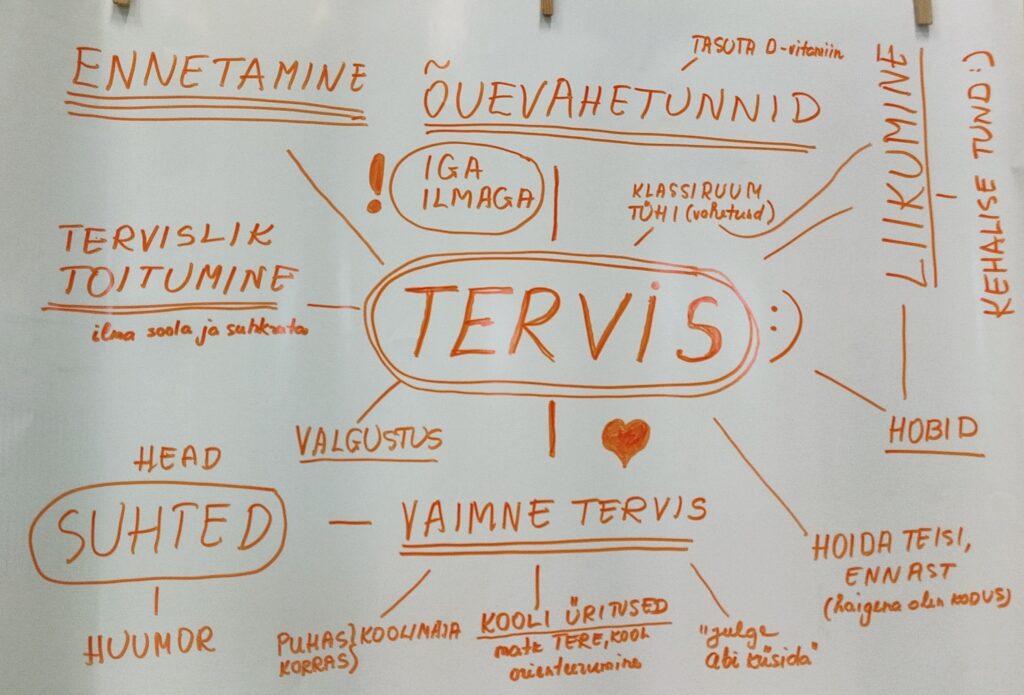 ENNETAMINE
TASUTA D-vitamiin
ÕUEVAHETUNNID
IGA
ILMAGA
!
KLASSIRUUM
TÜHI (vahetund)
LIIKUMINE
KEHALISE TUND :)
TERVISLIK
TOITUMINE
ilma soola ja suhkruta
TERVIS :)
VALGUSTUS
HOBID
HEAD
SUHTED
HUUMOR
VAIMNE TERVIS
PUHAS} KOOLIMAJA
KORRAS)
KOOLI ÜRITUSED
matk TERE, KOOL
orienteerumine
"julge
abi küsida"
HOIDA TEISI,
ENNAST
(haigena olen KODUS)